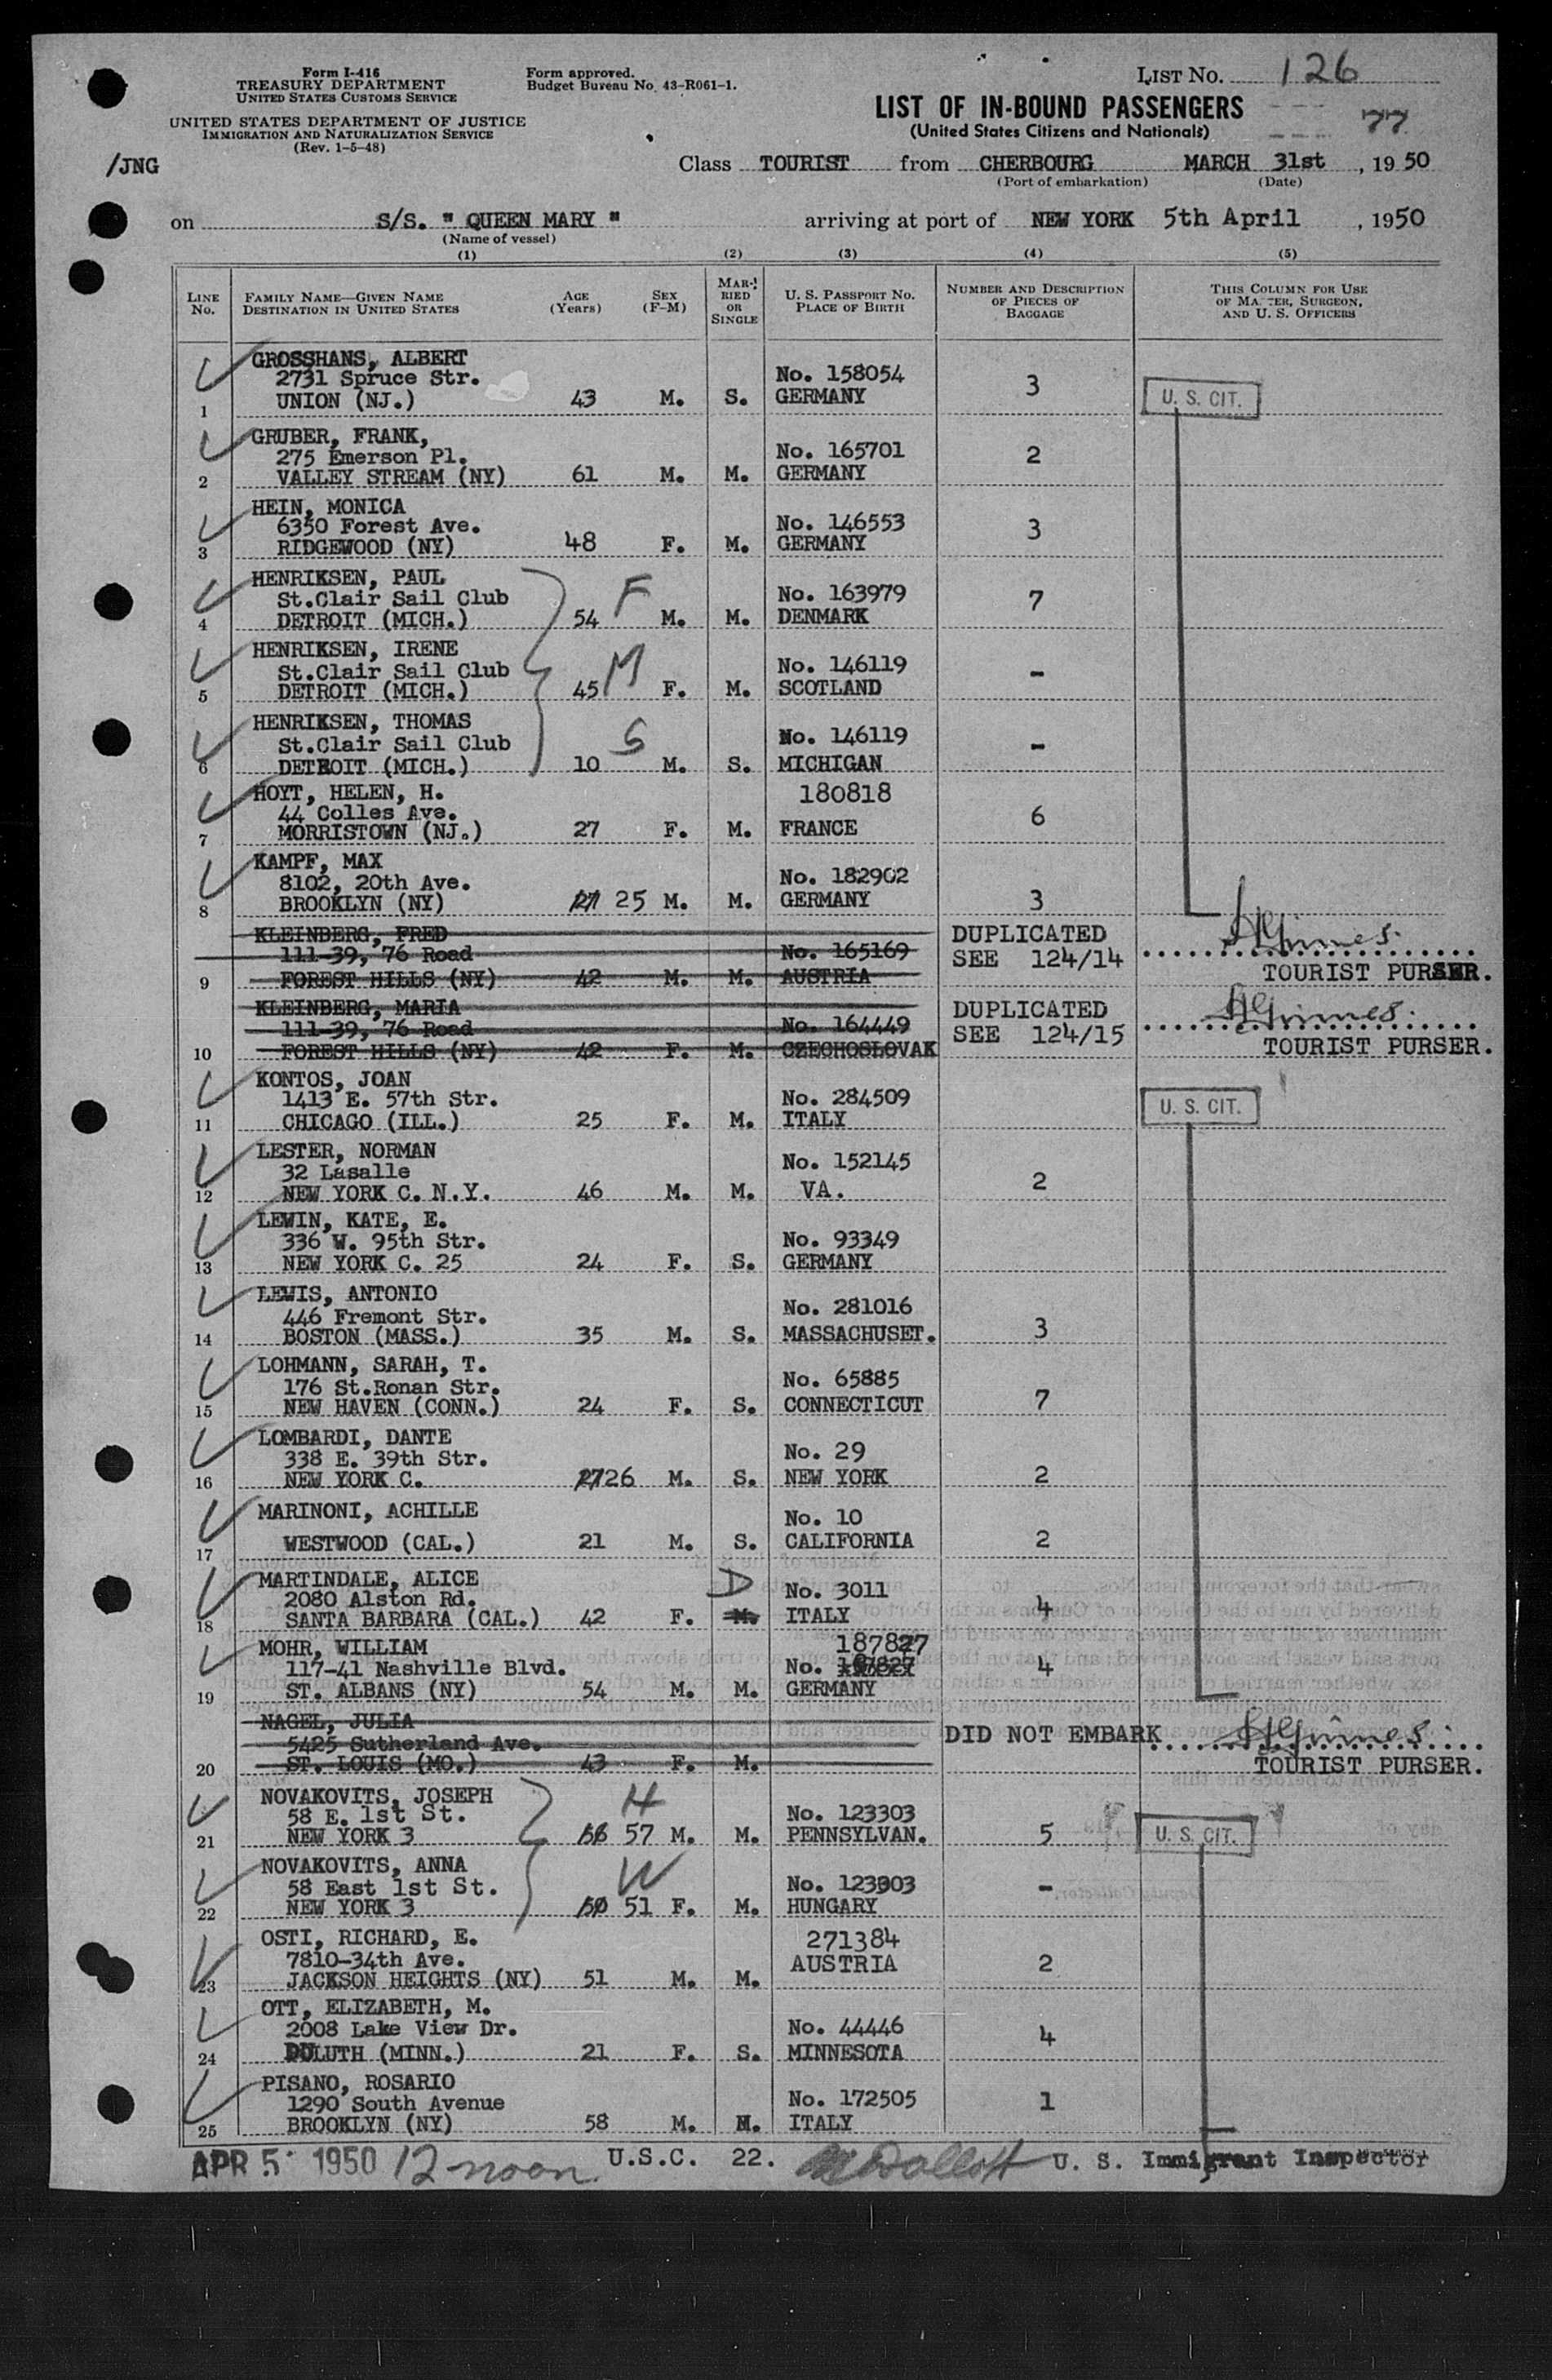 Form I-416
TREASURY DEPARTMENT
UNITED STATES CUSTOMS SERVICE
UNITED STATES DEPARTMENT OF JUSTICE
IMMIGRATION AND NATURALIZATION SERVICE
(Rev. 1-5-48)
/JNG
Form approved.
Budget Bureau No. 43-R061-1.
LIST NO. 126
LIST OF IN-BOUND PASSENGERS
(United States Citizens and Nationals)
77
Class TOURIST from CHERBOURG MARCH 31st, 1950
(Port of embarkation) (Date)
on S/S. " QUEEN MARY " arriving at port of NEW YORK 5th April, 1950
(Name of vessel)
(1) (2) (3) (4) (5)
LINE NO.
FAMILY NAME—GIVEN NAME
DESTINATION IN UNITED STATES
AGE (Years)
SEX (F-M)
MARRIED OR SINGLE
U. S. PASSPORT NO.
PLACE OF BIRTH
NUMBER AND DESCRIPTION OF PIECES OF BAGGAGE
THIS COLUMN FOR USE OF MASTER, SURGEON, AND U. S. OFFICERS
GROSSHANS, ALBERT
2731 Spruce Str. No. 158054 3
1 UNION (NJ.) 43 M. S. GERMANY U. S. CIT.
GRUBER, FRANK,
275 Emerson Pl. No. 165701 2
2 VALLEY STREAM (NY) 61 M. M. GERMANY
HEIN, MONICA
6350 Forest Ave. No. 146553 3
3 RIDGEWOOD (NY) 48 F. M. GERMANY
HENRIKSEN, PAUL
St.Clair Sail Club F No. 163979 7
4 DETROIT (MICH.) 54 M. M. DENMARK
HENRIKSEN, IRENE
St.Clair Sail Club M No. 146119 -
5 DETROIT (MICH.) 45 F. M. SCOTLAND
HENRIKSEN, THOMAS
St.Clair Sail Club S No. 146119 -
6 DETROIT (MICH.) 10 M. S. MICHIGAN
HOYT, HELEN, H. 180818
44 Colles Ave. 6
7 MORRISTOWN (NJ.) 27 F. M. FRANCE
KAMPF, MAX
8102, 20th Ave. No. 182902
8 BROOKLYN (NY) 27 25 M. M. GERMANY 3
KLEINBERG, FRED DUPLICATED
111-39, 76 Road No. 165169 SEE 124/14
9 FOREST HILLS (NY) 42 M. M. AUSTRIA TOURIST PURSER.
KLEINBERG, MARIA DUPLICATED
111-39, 76 Road No. 164449 SEE 124/15
10 FOREST HILLS (NY) 42 F. M. CZECHOSLOVAK TOURIST PURSER.
KONTOS, JOAN
1413 E. 57th Str. No. 284509 U. S. CIT.
11 CHICAGO (ILL.) 25 F. M. ITALY
LESTER, NORMAN
32 Lasalle No. 152145
12 NEW YORK C. N.Y. 46 M. M. VA. 2
LEWIN, KATE, E.
336 W. 95th Str. No. 93349
13 NEW YORK C. 25 24 F. S. GERMANY
LEWIS, ANTONIO
446 Fremont Str. No. 281016
14 BOSTON (MASS.) 35 M. S. MASSACHUSET. 3
LOHMANN, SARAH, T.
176 St.Ronan Str. No. 65885
15 NEW HAVEN (CONN.) 24 F. S. CONNECTICUT 7
LOMBARDI, DANTE
338 E. 39th Str. No. 29
16 NEW YORK C. 27 26 M. S. NEW YORK 2
MARINONI, ACHILLE No. 10
17 WESTWOOD (CAL.) 21 M. S. CALIFORNIA 2
MARTINDALE, ALICE D
2080 Alston Rd. No. 3011 4
18 SANTA BARBARA (CAL.) 42 F. M. ITALY
MOHR, WILLIAM 187827
117-41 Nashville Blvd. No. 4
19 ST. ALBANS (NY) 54 M. M. GERMANY
NAGEL, JULIA
5425 Sutherland Ave. DID NOT EMBARK
20 ST. LOUIS (MO.) 43 F. M. TOURIST PURSER.
NOVAKOVITS, JOSEPH H
58 E. 1st St. No. 123303
21 NEW YORK 3 57 M. M. PENNSYLVAN. 5 U. S. CIT.
NOVAKOVITS, ANNA W
58 East 1st St. No. 123303 -
22 NEW YORK 3 50 51 F. M. HUNGARY
OSTI, RICHARD, E. 271384
7810-34th Ave. AUSTRIA 2
23 JACKSON HEIGHTS (NY) 51 M. M.
OTT, ELIZABETH, M.
2008 Lake View Dr. No. 44446 4
24 DULUTH (MINN.) 21 F. S. MINNESOTA
PISANO, ROSARIO
1290 South Avenue No. 172505 1
25 BROOKLYN (NY) 58 M. M. ITALY
APR 5 1950 12 noon U.S.C. 22. U. S. Immigrant Inspector